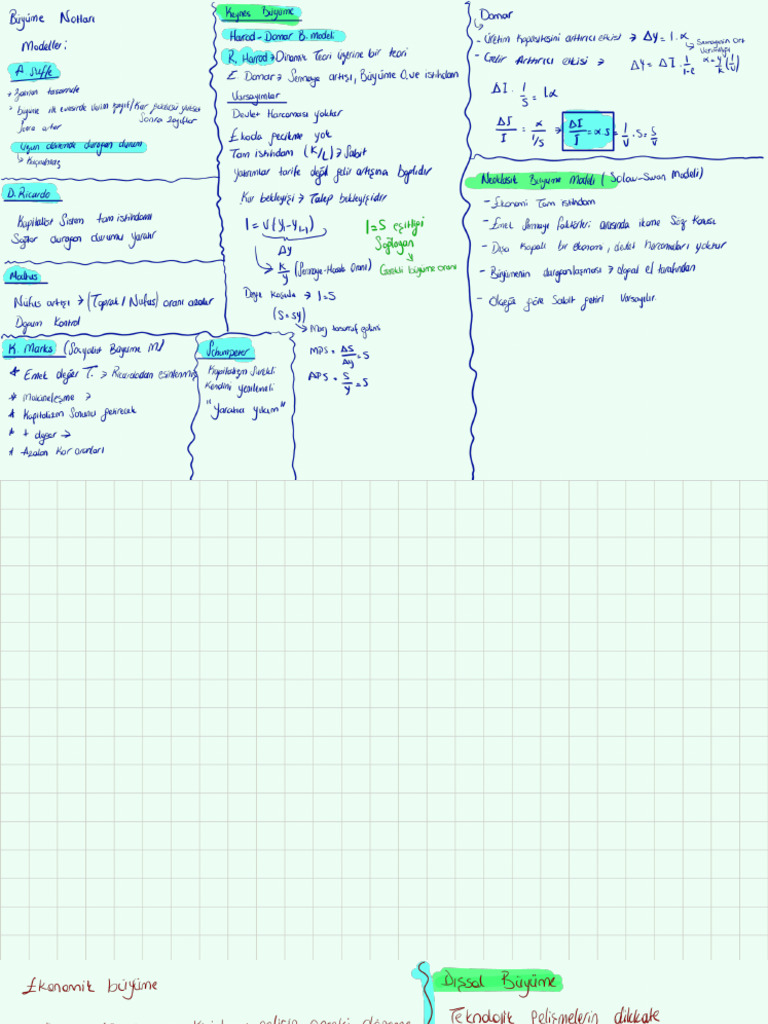 Büyüme Notları
Modeller:
A Smith
Büyüme ilk evresinde
Sonra zayıflar
Sonra artar
Uzun dönemde durağan durum
D. Ricardo
Kapitalist Sistem tam istihdamı
Sağlar durağan durumu yaratır
Malthus
Nüfus artışı → (Toprak / Nüfus) oranı azalır
Doğum Kontrol
K Marks (Sosyalist Büyüme M.)
* Emek değer T. → Ricardodan esinlenmiş
* Makineleşme →
* Kapitalizm Sonunu getirecek
* + değer →
* Azalan Kar oranları
Schumpeter
Kapitalizm Sürekli
Kendini yenilemeli
"Yaratıcı yıkım"
Keynes Büyüme
Harod - Domar B. modeli
R. Harod → Dinamik Teori üzerine bir teori
E Domar → Sermaye artışı, Büyüme O. ve istihdam
Varsayımlar
Devlet Harcaması yoktur
Ekoda gecikme yok
Tam istihdam (K/L) → Sabit
Yatırımlar tarife değil gelir artışına bağlıdır
Kar bekleyişi → Talep bekleyişidir
I = V(Yt - Yt-1)
Δy
K/y (Sermaye-Hasıla Oranı)
I=S eşitliği
Sağlayan
Gerekli büyüme oranı
Denge Koşulu → I=S
(S=sy)
Marj tasarruf
MPS = ΔS/Δy = S
APS = S/y = S
Domar
- Üretim Kapasitesini arttırıcı etkisi → Δy = I.α
Sermayenin Ort
Verimliliği
- Gelir Arttırıcı etkisi → Δy = ΔI . 1/1-c
ΔI . 1/S = Iα
ΔI/I = α/1/S → ΔI/I = α.S = 1/V . S = S/V
Neoklasik Büyüme Modeli (Solow-Swan Modeli)
- Ekonomi Tam istihdam
- Emek Sermaye faktörleri arasında ikame Söz Konusu
- Dışa Kapalı bir ekonomi, devlet harcamaları yoktur
- Büyümenin durağanlaşması → doğal el tarafından
- Ölçeğe göre Sabit getiri Varsayılır.
Ekonomik büyüme
Dışsal Büyüme
Teknolojik gelişmelerin dikkate